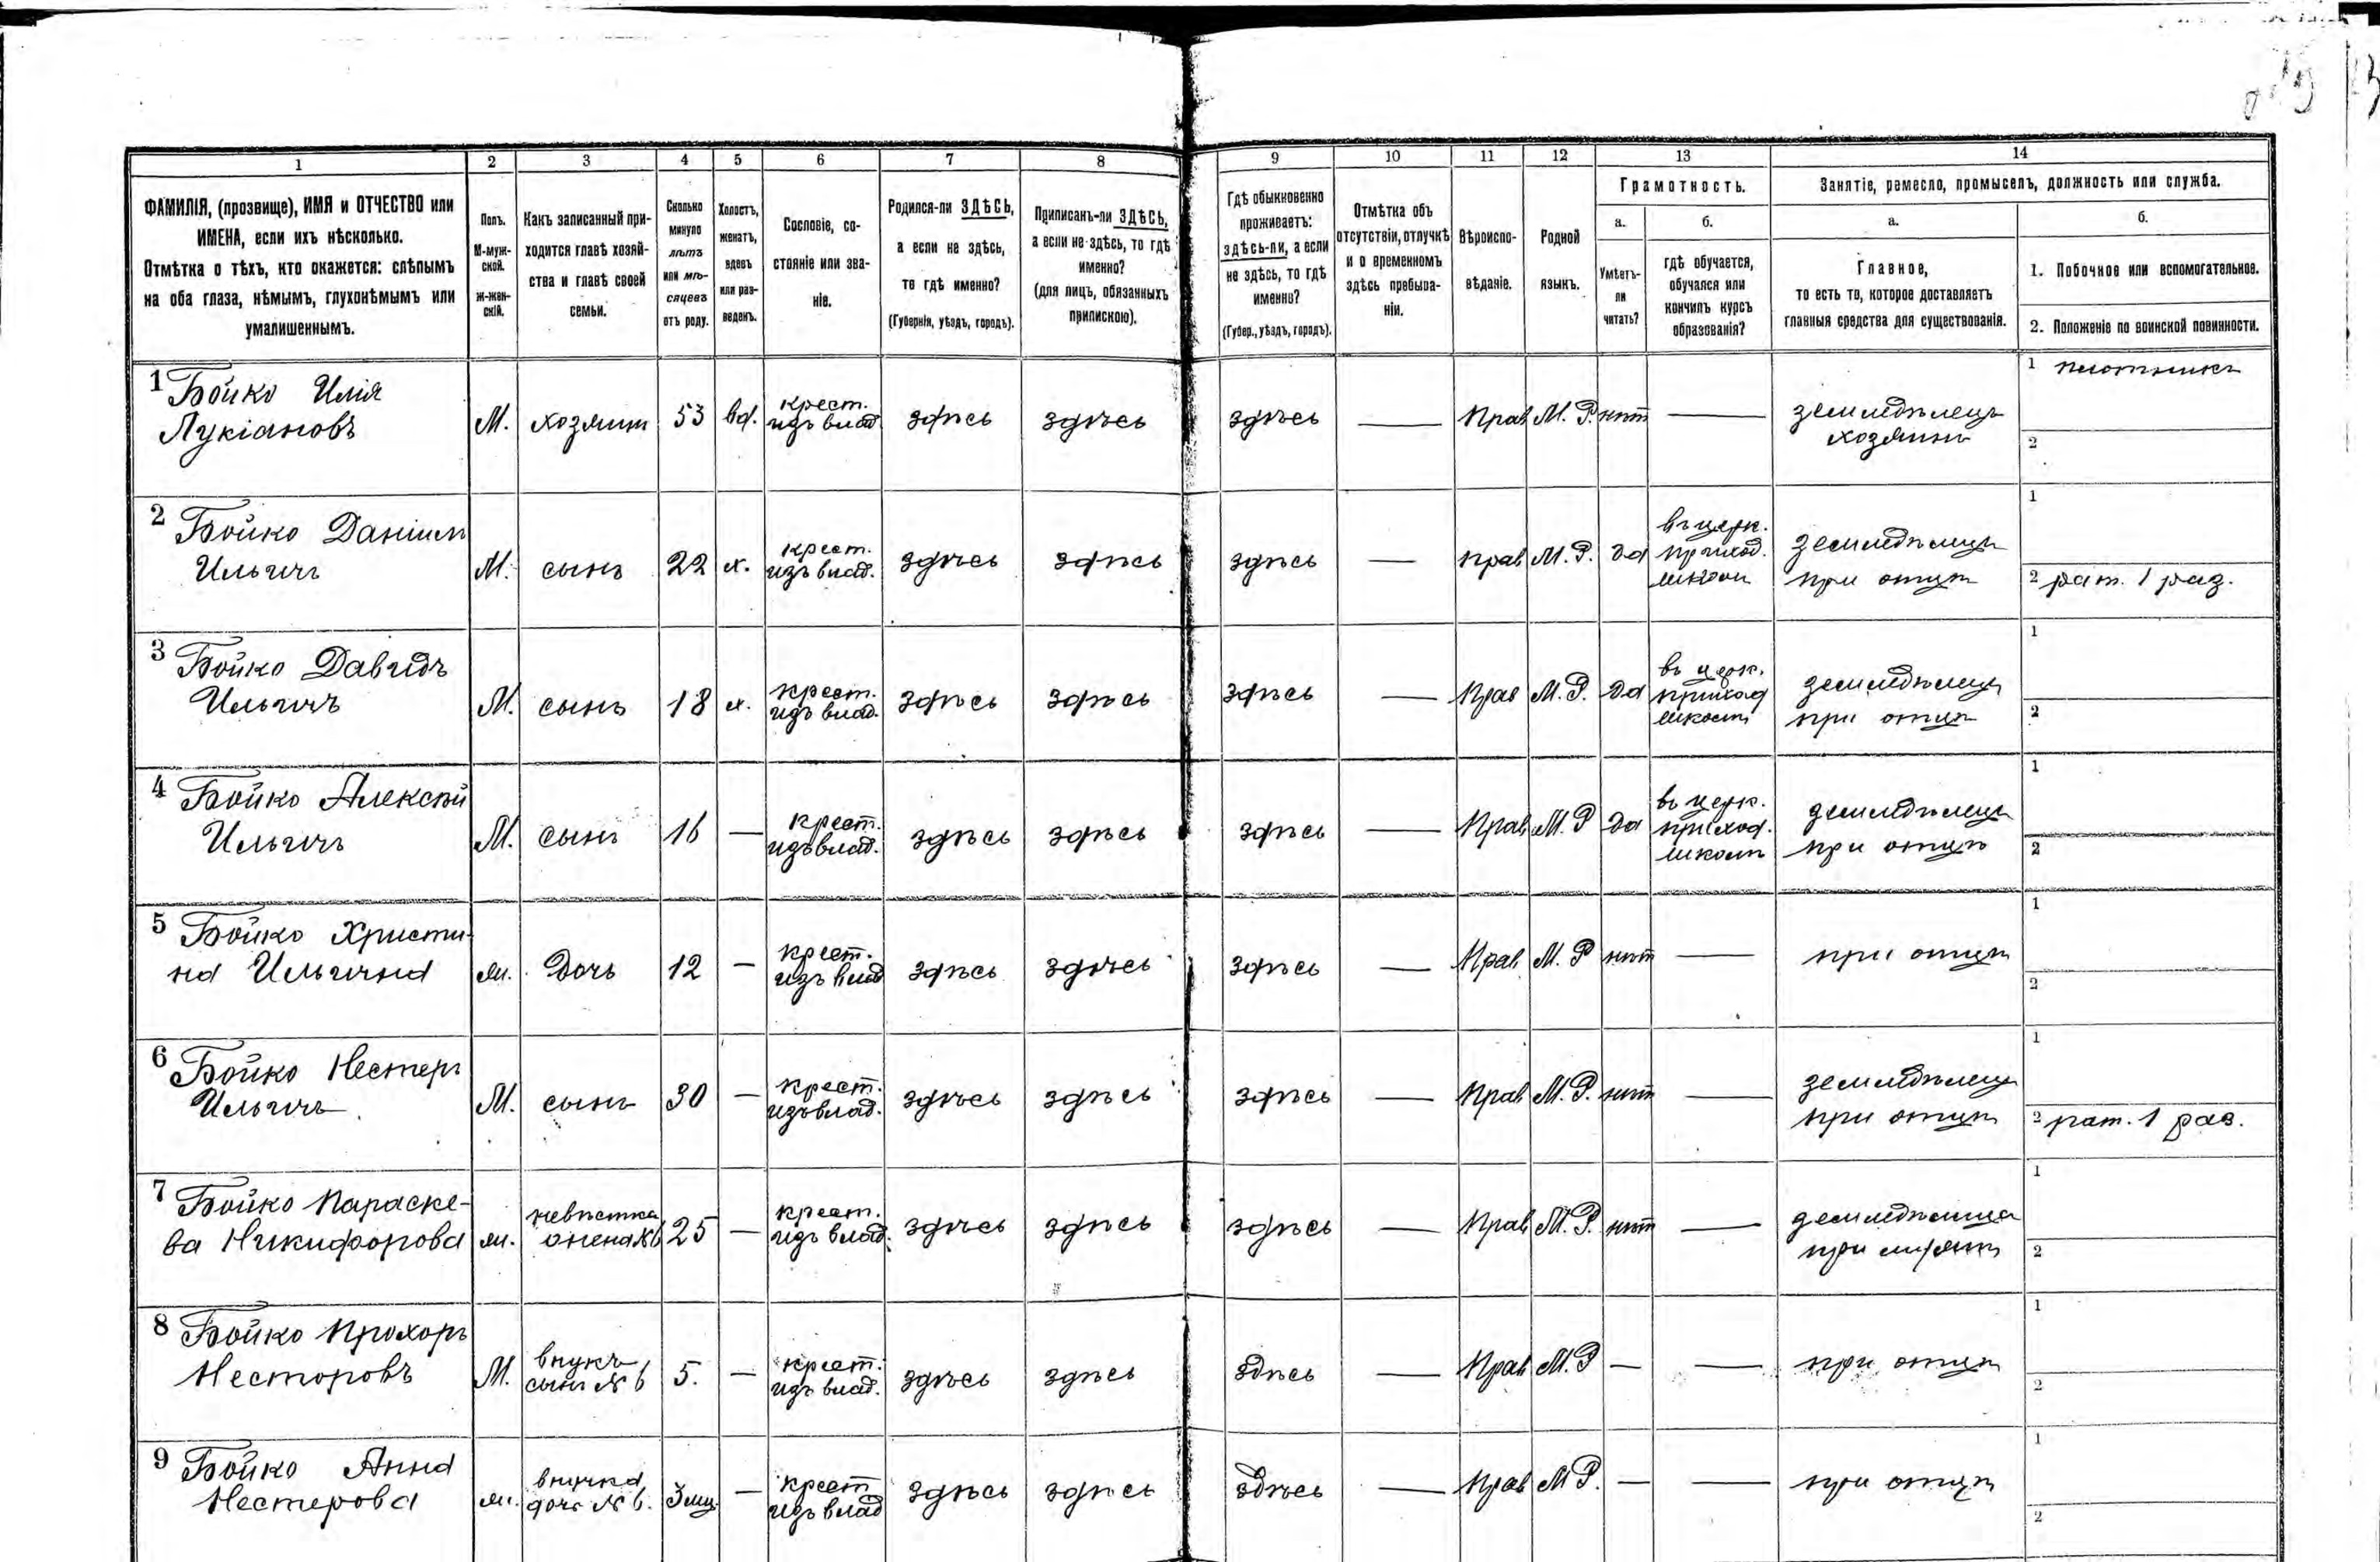 1 2 3 4 5 6 7 8 9 10 11 12 13 14
ФАМИЛІЯ, (прозвище), ИМЯ и ОТЧЕСТВО или
ИМЕНА, если ихъ нѣсколько.
Отмѣтка о тѣхъ, кто окажется: слѣпымъ
на оба глаза, нѣмымъ, глухонѣмымъ или
умалишеннымъ.
Полъ.
М-муж-
ской.
Ж-жен-
скій.
Какъ записанный при-
ходится главѣ хозяй-
ства и главѣ своей
семьи.
Сколько
минуло
лѣтъ
или мѣ-
сяцевъ
отъ роду.
Холостъ,
женатъ,
вдовъ
или раз-
веденъ.
Сословіе, со-
стояніе или зва-
ніе.
Родился-ли ЗДѢСЬ,
а если не здѣсь,
то гдѣ именно?
(Губернія, уѣздъ, городъ).
Приписанъ-ли ЗДѢСЬ,
а если не здѣсь, то гдѣ
именно?
(для лицъ, обязанныхъ
припискою).
Гдѣ обыкновенно
проживаетъ:
здѣсь-ли, а если
не здѣсь, то гдѣ
именно?
(Губер., уѣздъ, городъ).
Отмѣтка объ
отсутствіи, отлучкѣ
и о временномъ
здѣсь пребыва-
ніи.
Вѣроиспо-
вѣданіе.
Родной
языкъ.
Грамотность.
а.
Умѣетъ-
ли
читать?
б.
гдѣ обучается,
обучался или
кончилъ курсъ
образованія?
Занятіе, ремесло, промыселъ, должность или служба.
а.
Главное,
то есть то, которое доставляетъ
главныя средства для существованія.
б.
1. Побочное или вспомогательное.
2. Положеніе по воинской повинности.
1 Бойко Илія
Лукіановъ
М. хозяин 53 вд. крест.
изъ влад здѣсь здѣсь здѣсь — Прав М. Р. нѣт — земледѣлецъ
хозяинъ
1 плотникъ
2
2 Бойко Даніил
Ильичъ
М. сынъ 22 х. крест.
изъ влад. здѣсь здѣсь здѣсь — прав М. Р. да въ церк.
приход.
школи
земледѣлецъ
при отцѣ
1
2 рат. 1 раз.
3 Бойко Давидъ
Ильичъ
М. сынъ 18 х. крест.
изъ влад. здѣсь здѣсь здѣсь — Прав М. Р. да въ церк.
приход
школѣ
земледѣлецъ
при отцѣ
1
2
4 Бойко Алексѣй
Ильичъ
М. сынъ 16 — крест.
изъ влад. здѣсь здѣсь здѣсь — Прав М. Р да въ церк.
приход.
школѣ
земледѣлецъ
при отцѣ
1
2
5 Бойко Христи-
на Ильична
ж. Дочь 12 — крест.
изъ влад здѣсь здѣсь здѣсь — Прав М. Р нѣт — при отцѣ
1
2
6 Бойко Нестеръ
Ильичъ
М. сынъ 30 — крест.
изъ влад. здѣсь здѣсь здѣсь — Прав М. Р. нѣт — земледѣлецъ
при отцѣ
1
2 рат. 1 раз.
7 Бойко Параске-
ва Никифорова
ж. невѣстка
жена №6 25 — крест.
изъ влад. здѣсь здѣсь здѣсь — Прав М. Р. нѣт —
при мужѣ
1
2
8 Бойко Прохоръ
Несторовъ
М. внукъ
сынъ № 6 5. — крест.
изъ влад. здѣсь здѣсь здѣсь — Прав М. Р — — при отцѣ
1
2
9 Бойко Анна
Нестерова
ж. внучка
дочь № 6. 3 мц — крест
изъ влад здѣсь здѣсь здѣсь — Прав М Р. — — при отцѣ
1
2